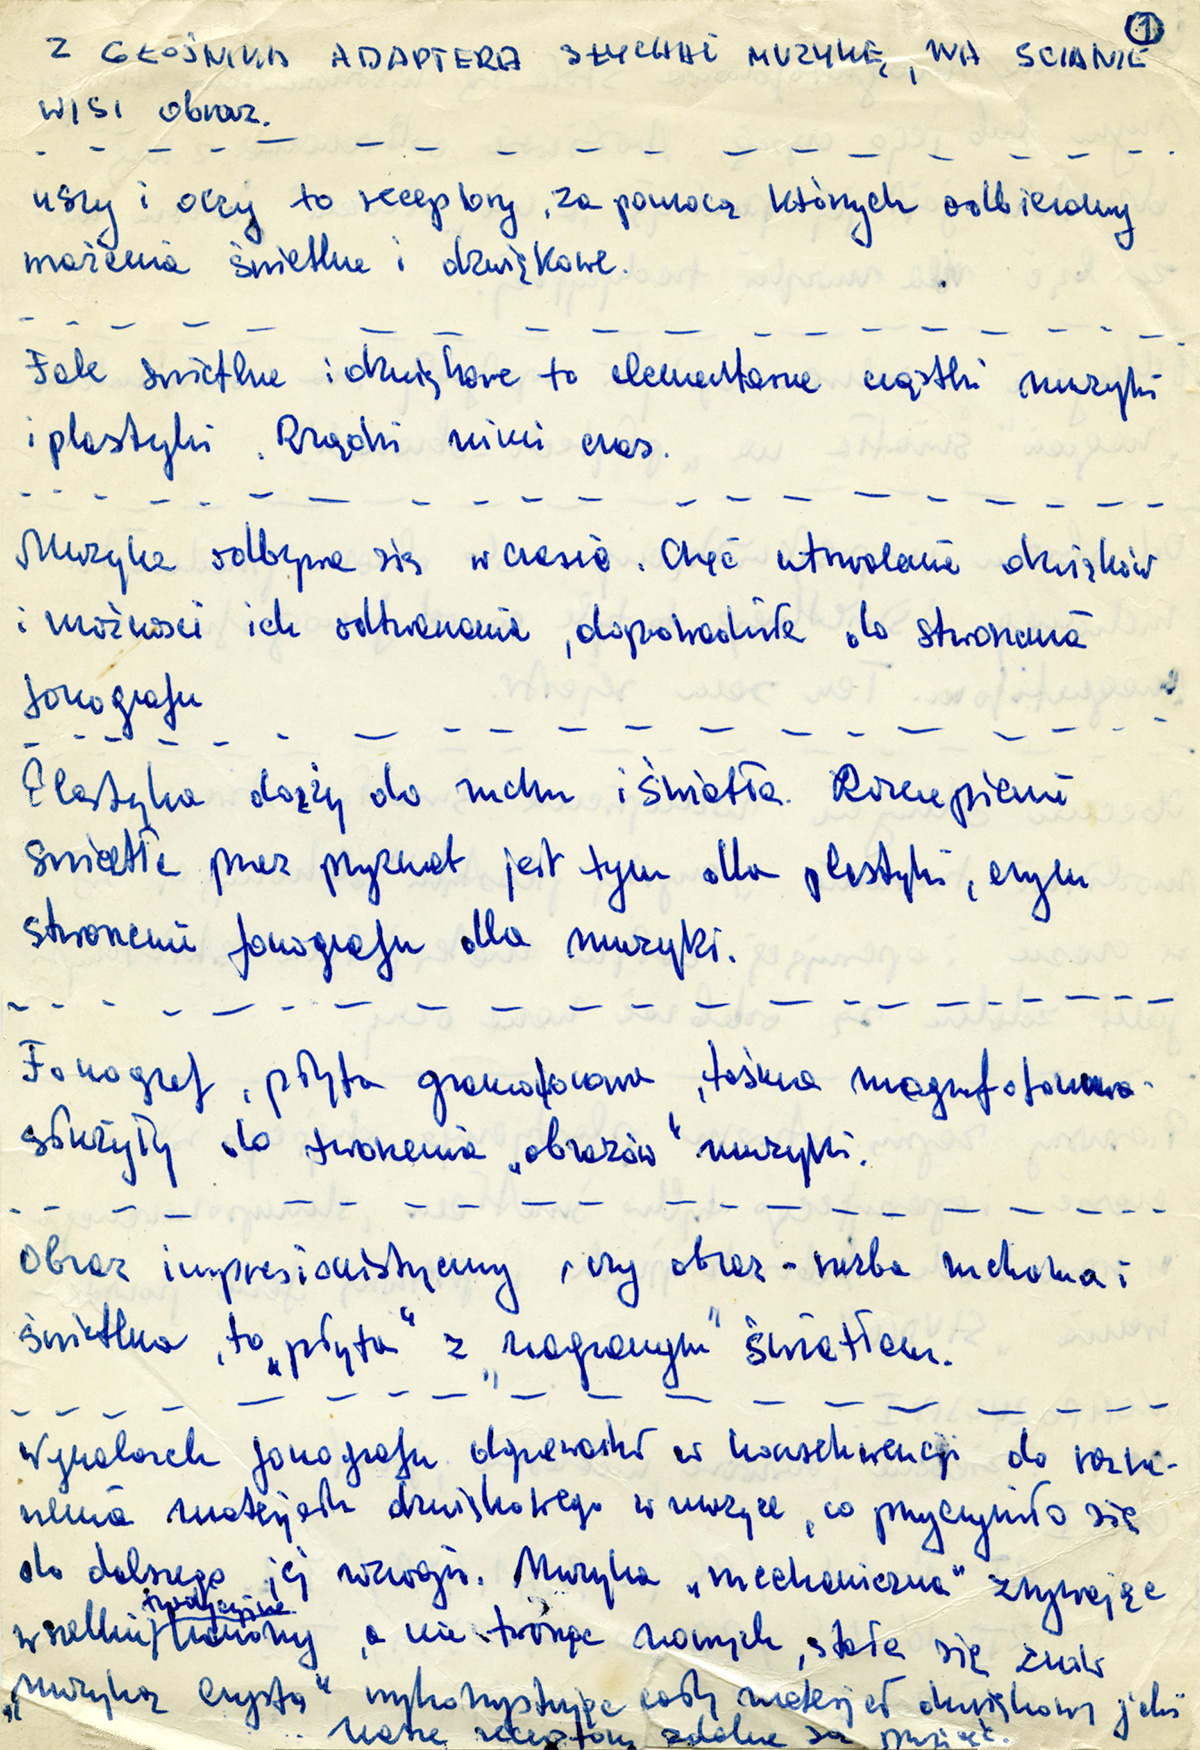 1
Z GŁOŚNIKA ADAPTERA SŁYCHAĆ MUZYKĘ, NA ŚCIANIE
WISI obraz.
uszy i oczy to receptory, za pomocą których odbieramy
wrażenia świetlne i dźwiękowe.
Fale świetlne i dźwiękowe to elementarne cząstki muzyki
i plastyki. Rządzi nimi czas.
Muzyka odbywa się w czasie. Chęć utrwalenia dźwięków
i możności ich odtwarzania, doprowadziła do stworzenia
fonografu
Plastyka dąży do ruchu i światła. Rozszczepienie
światła przez pryzmat jest tym dla plastyki, czym
stworzenie fonografu dla muzyki.
Fonograf, płyta gramofonowa, taśma magnetofonowa -
służyły do tworzenia „obrazów" muzyki.
Obraz impresjonistyczny, czy obraz - rzeźba ruchoma i
świetlna, to „płyta" z „nagranym" światłem.
Wynalazek fonografu doprowadził w konsekwencji do
materiału dźwiękowego w muzyce, co przyczyniło się
do dalszego jej rozwoju. Muzyka „mechaniczna" zrywając
tradycyjne
wszelkie kanony, a nie tworząc nowych, stała się znów
„muzyką czystą" wykorzystując cały materiał dźwiękowy jaki
nasze receptory zdolne są przyjąć.